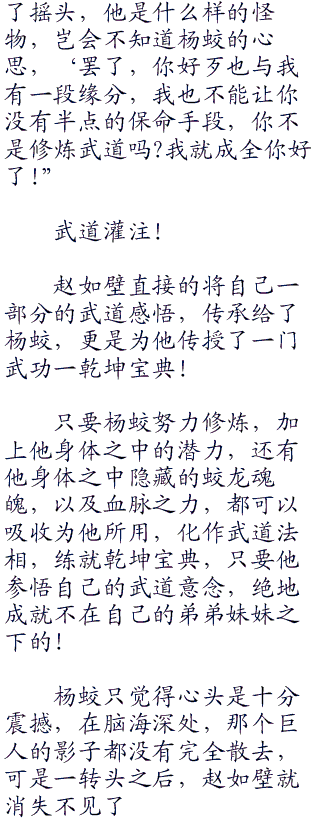 了摇头，他是什么样的怪
物，岂会不知道杨蛟的心
思，‘罢了，你好歹也与我
有一段缘分，我也不能让你
没有半点的保命手段，你不
是修炼武道吗?我就成全你好
了!”
武道灌注!
赵如壁直接的将自己一
部分的武道感悟，传承给了
杨蛟，更是为他传授了一门
武功一乾坤宝典!
只要杨蛟努力修炼，加
上他身体之中的潜力，还有
他身体之中隐藏的蛟龙魂
魄，以及血脉之力，都可以
吸收为他所用，化作武道法
相，练就乾坤宝典，只要他
参悟自己的武道意念，绝地
成就不在自己的弟弟妹妹之
下的!
杨蛟只觉得心头是十分
震撼，在脑海深处，那个巨
人的影子都没有完全散去，
可是一转头之后，赵如壁就
消失不见了